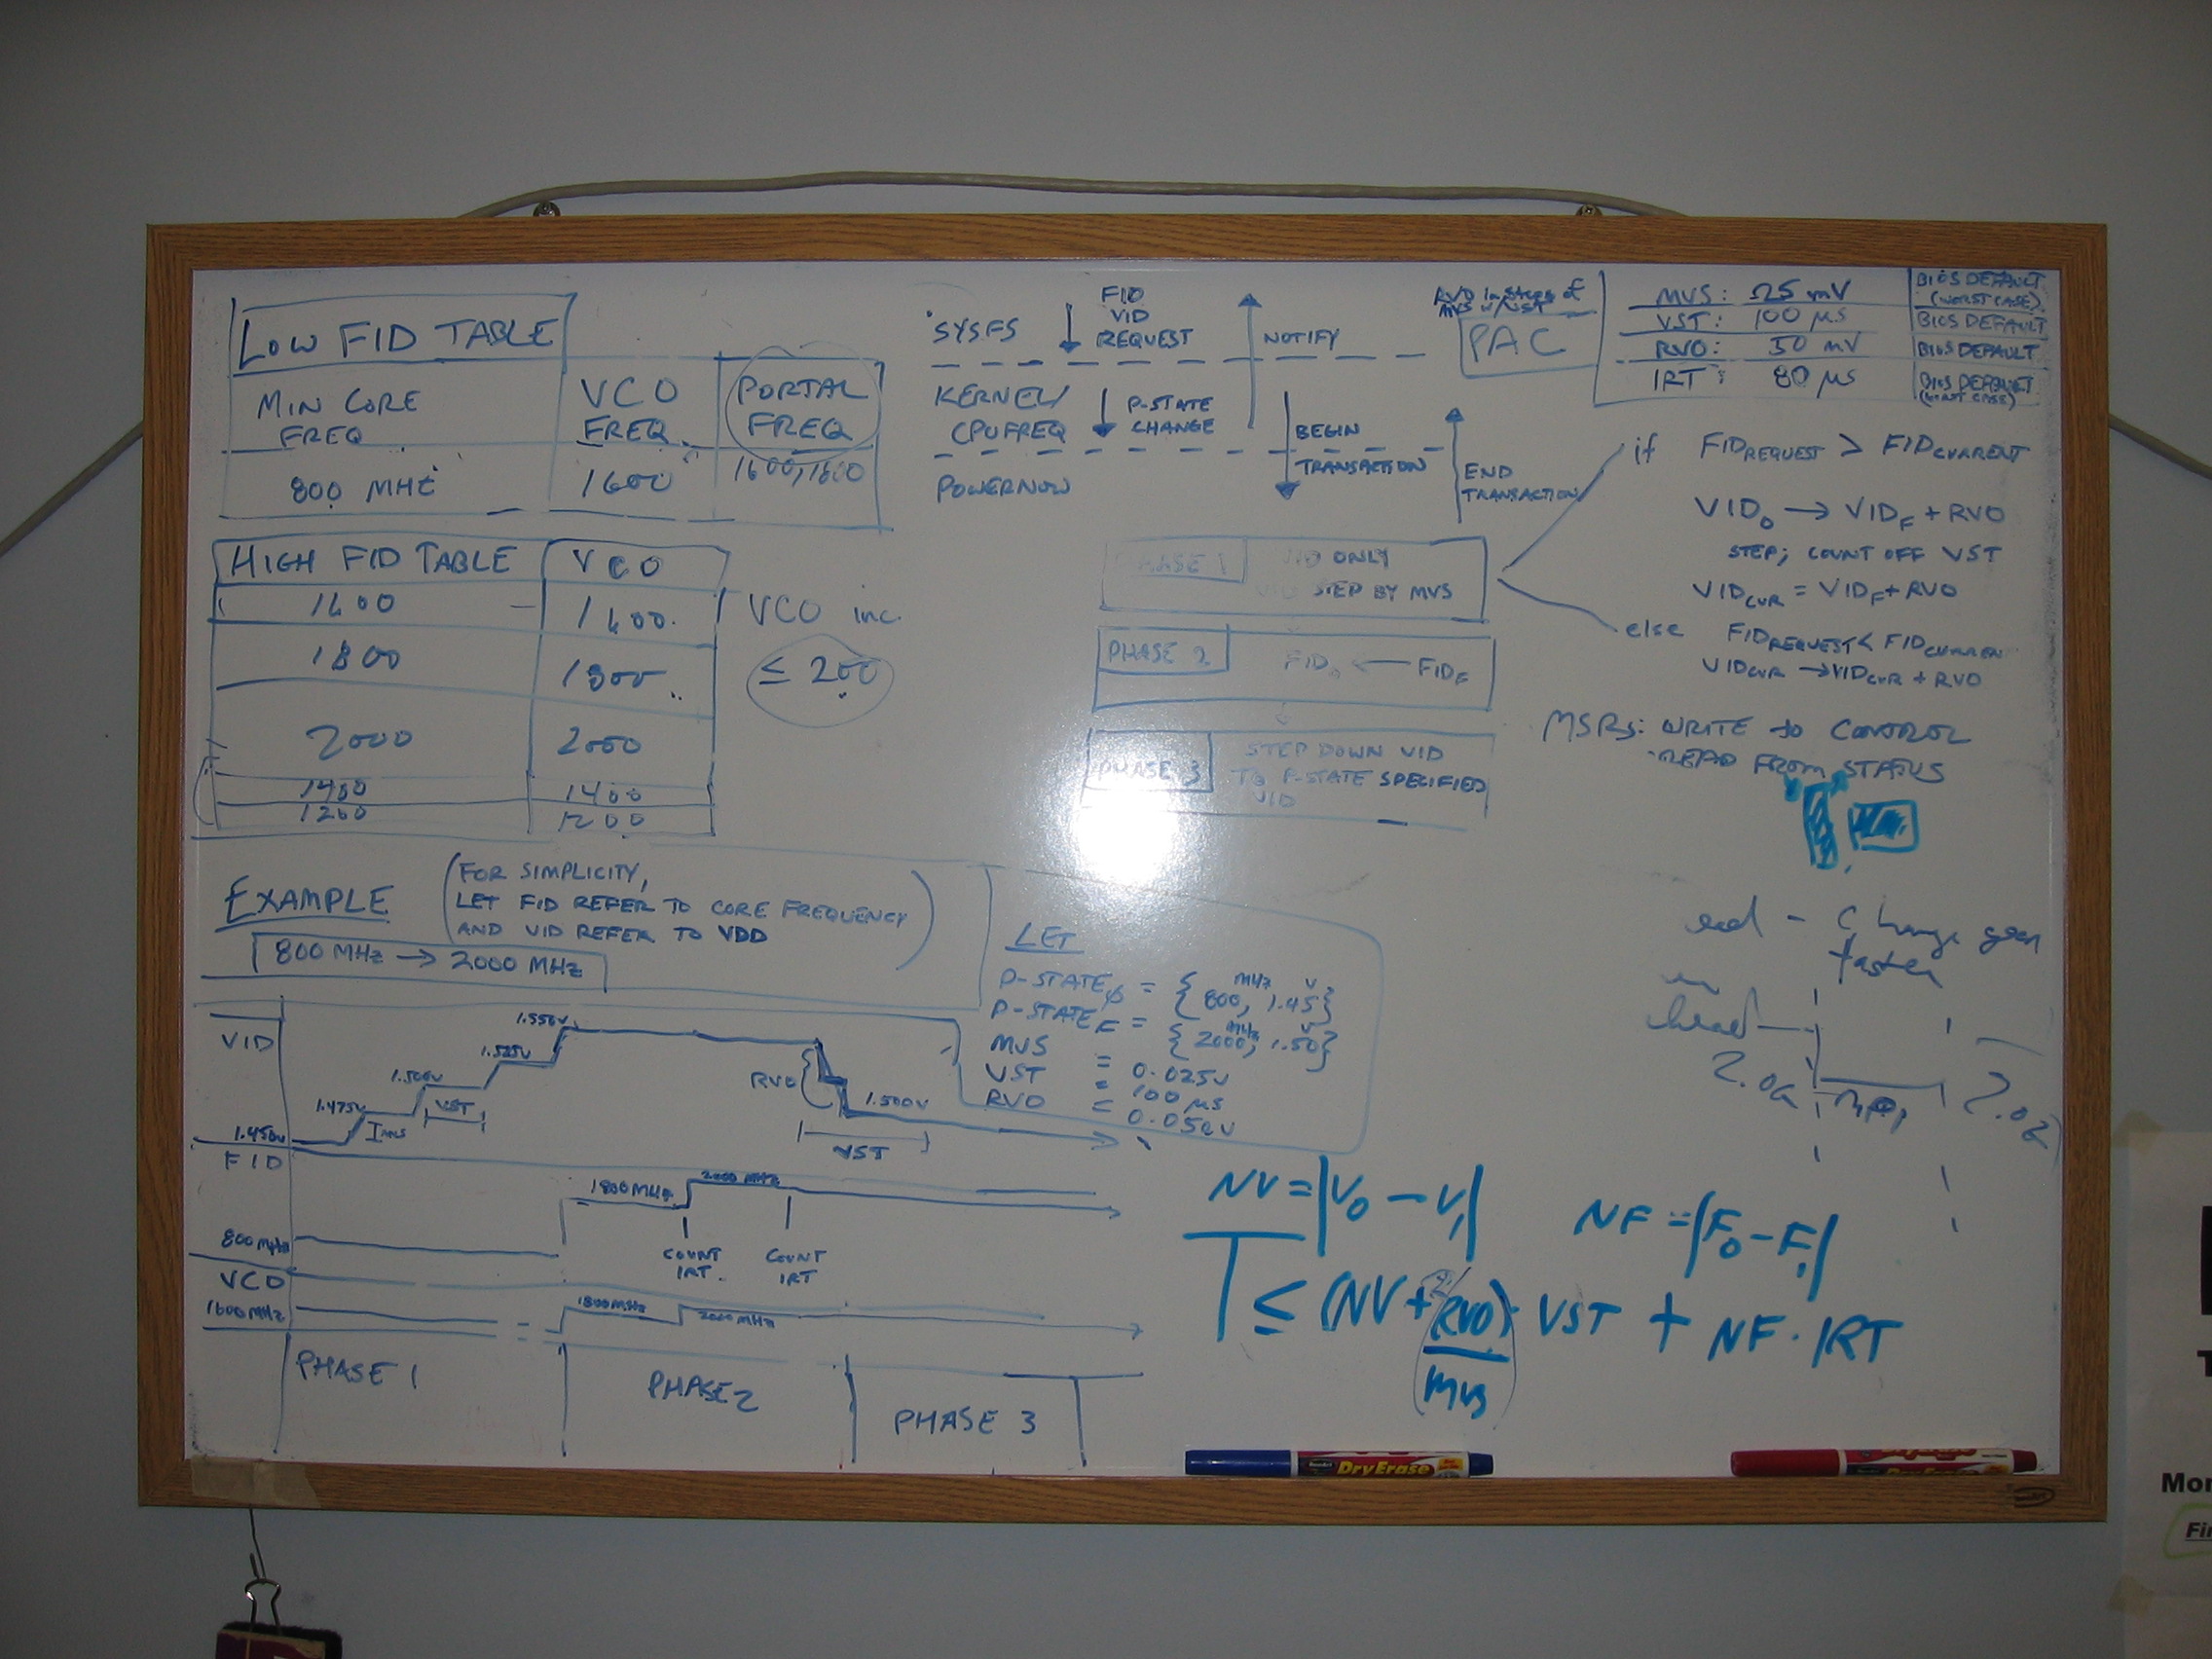 LOW FID TABLE
MIN CORE FREQ
VCO FREQ.
PORTAL FREQ
800 MHz
1600
1600, 1800
HIGH FID TABLE
VCO
1600
1600
1800
1800
2000
2000
1400
1400
1200
1200
VCO inc.
≤ 200
SYSFS
FID
VID
REQUEST
NOTIFY
KERNEL/
CPUFREQ
P-STATE
CHANGE
BEGIN
TRANSACTION
POWERNOW
END
TRANSACTION
RVO in steps of
MVS w/VST
PAC
MVS: 25 mV
BIOS DEFAULT
(WORST CASE)
VST: 100 µs
BIOS DEFAULT
RVO: 50 mV
BIOS DEFAULT
IRT: 80 µs
BIOS DEFAULT
PHASE 1
VID ONLY
STEP BY MVS
PHASE 2
FID₀ ← FID_F
PHASE 3
STEP DOWN VID
TO P-STATE SPECIFIED
VID
if FID_REQUEST > FID_CURRENT
VID₀ → VID_F + RVO
STEP; COUNT OFF VST
VID_CUR = VID_F + RVO
else FID_REQUEST < FID_CURREN
VID_CUR → VID_CUR + RVO
MSRs: WRITE to CONTROL
READ FROM STATUS
EXAMPLE
(FOR SIMPLICITY,
LET FID REFER TO CORE FREQUENCY
AND VID REFER TO VDD)
800 MHz → 2000 MHz
LET
P-STATE₀ = {800 MHz, 1.45 V}
P-STATE_F = {2000 MHz, 1.50 V}
MVS = 0.025V
VST = 100 µs
RVO = 0.050V
VID
1.450V
1.475V
1.500V
1.525V
1.550V
VST
RVO
1.500V
VST
FID
800MHz
1800MHz
2000 MHz
COUNT
IRT
COUNT
IRT
VCO
1600MHz
1800MHz
2000MHz
PHASE 1
PHASE 2
PHASE 3
- Change
faster
head
NV = |V₀ - V₁|
NF = |F₀ - F₁|
T ≤ (NV + RVO/MVS) · VST + NF · IRT
DryErase
DryErase
Mor
Fir